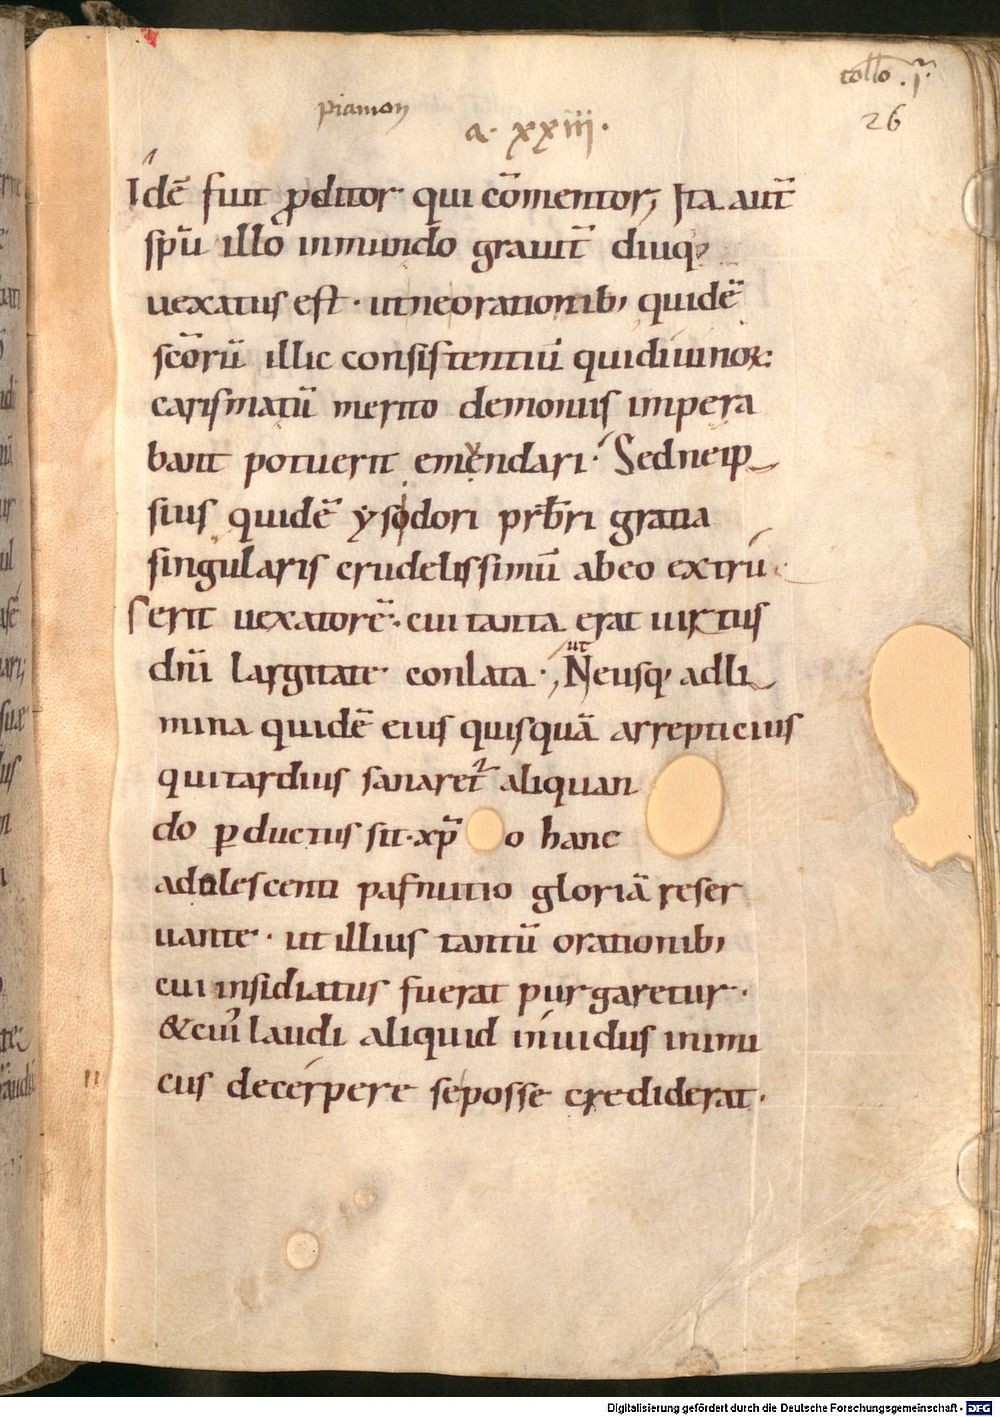 collo .j.
26
piamon
a. xxiii.
Idē fuit ꝓditor qui cōmentor; Ita aut̄
sp̄u illo inmundo grauit̄ diuq;
uexatus est · ut ne orationib; quidē
sc̄orū illic consistentiū qui diuinoꝝ
carismatū merito demoniis impera
bant potuerit emendari · Sed ne ip
sius quidē ysodori prb̄ri gratia
singularis crudelissimū ab eo extru
serit uexatorē · cui tanta erat uirtus
dn̄i largitate conlata · ut Ne usq; ad li
mina quidē eius quisquā arrepticius
qui tardius sanaret᷑ aliquan
do ꝑductus sit · xp̄o hanc
adulescenti pafnutio gloriā reser
uante · ut illius tantū orationib;
cui insidiatus fuerat purgaretur ·
& cui laudi aliquid inuidus inimi
cus decerpere se posse crediderat ·
Digitalisierung gefördert durch die Deutsche Forschungsgemeinschaft - DFG